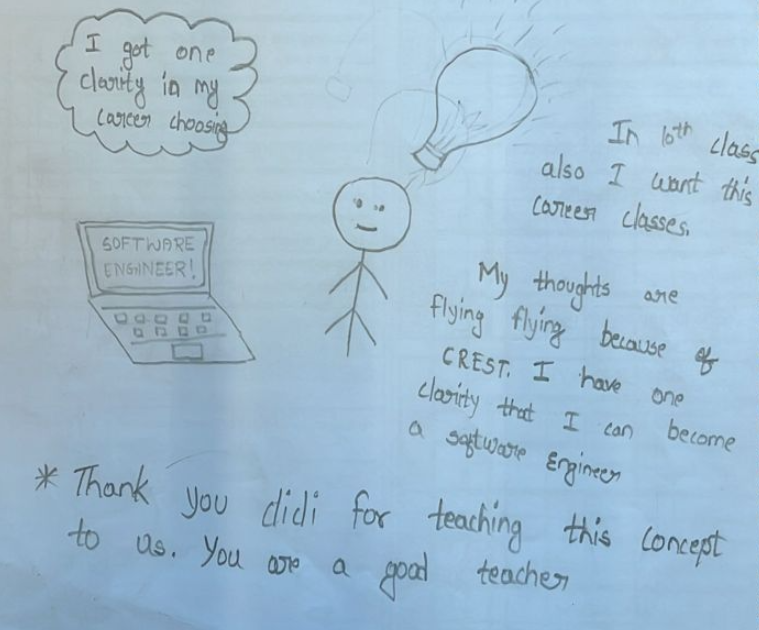 I got one
clarity in my
career choosing
SOFTWARE
ENGINEER!
In 10th class
also I want this
career classes.
My thoughts are
flying flying because of
CREST. I have one
clarity that I can become
a software Engineer
* Thank you didi for teaching this concept
to us. You are a good teacher